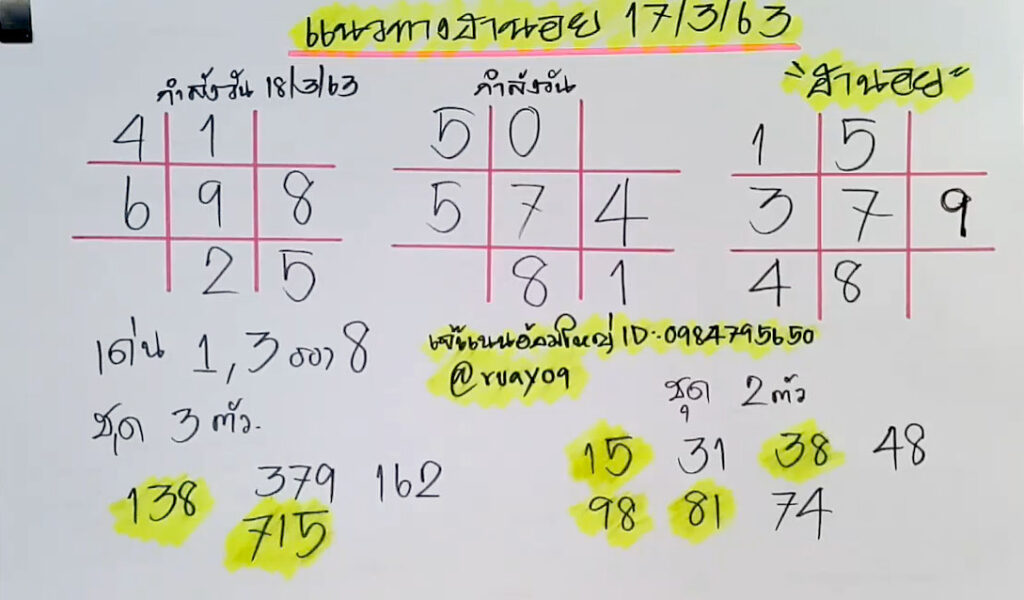 แนวทางฮานอย 17/3/63
กำลังวัน 18/3/63
4 1
6 9 8
2 5
กำลังวัน
5 0
5 7 4
8 1
"ฮานอย"
1 5
3 7 9
4 8
เด่น 1,3 รอง 8
เจ๊แนนอ้อมใหญ่ ID:0984795650
@ruay09
ชุด 3 ตัว.
138 379 162
715
ชุด 2 ตัว
15 31 38 48
98 81 74